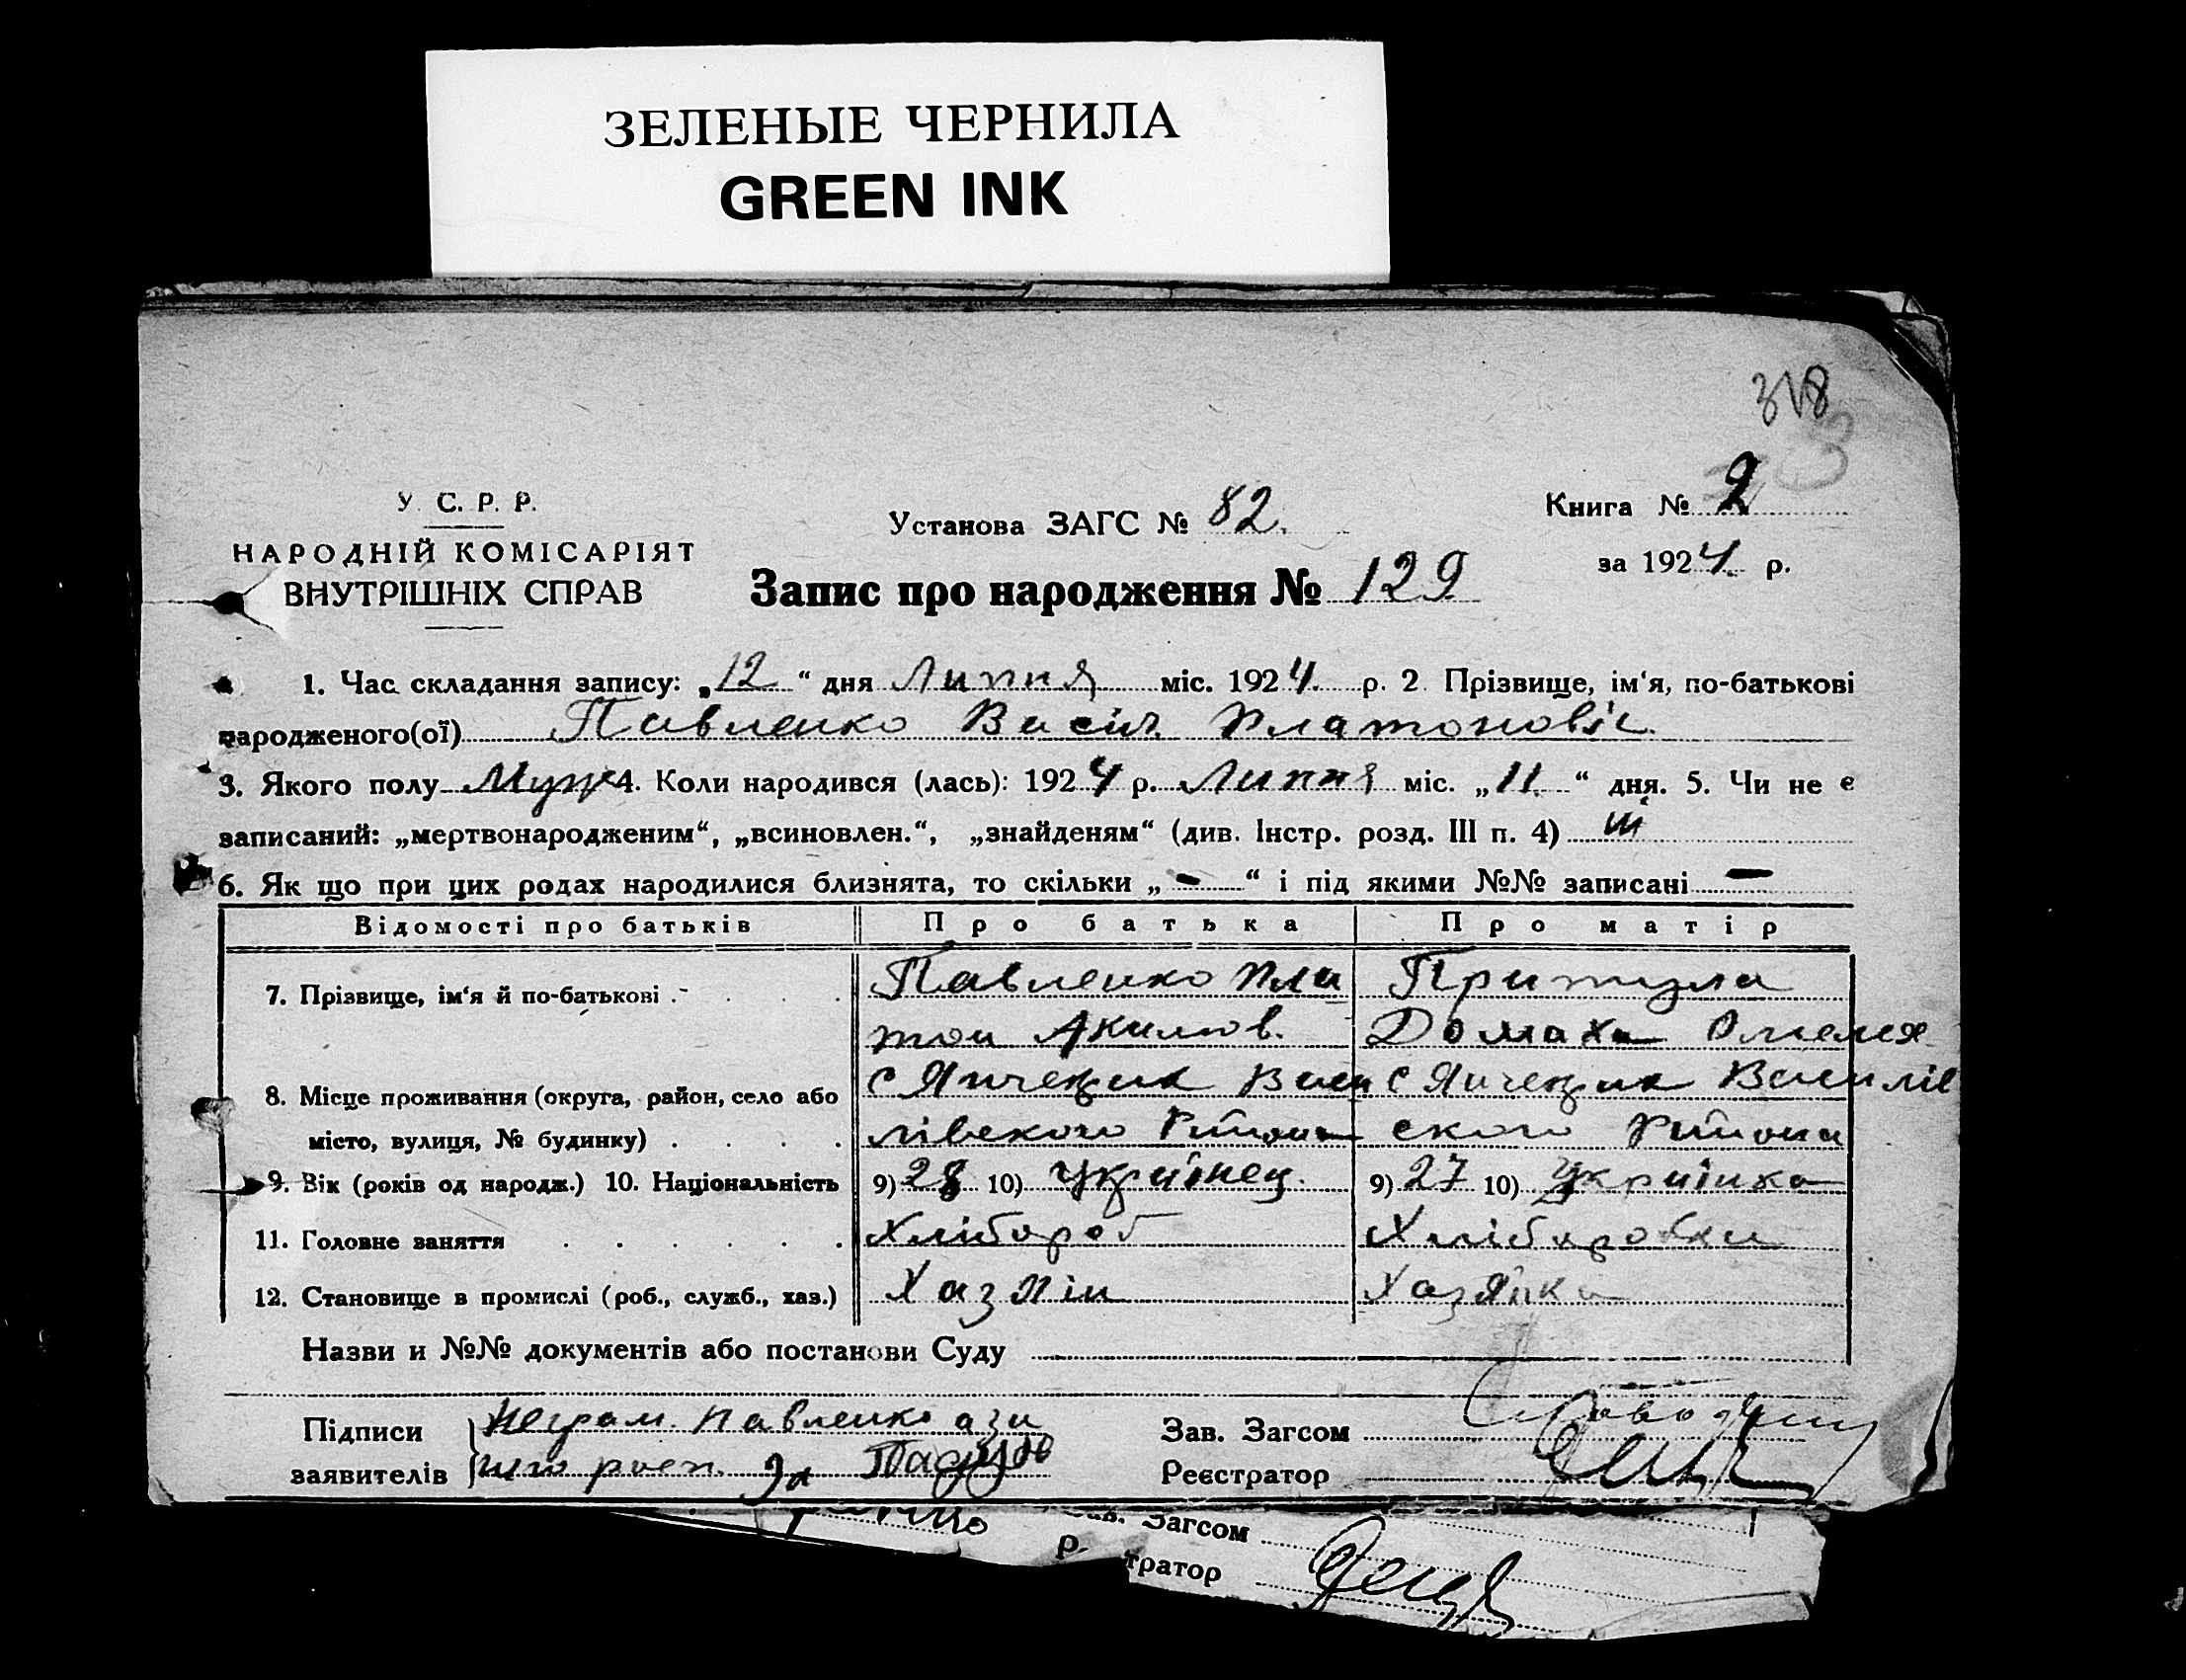 ЗЕЛЕНЫЕ ЧЕРНИЛА
GREEN INK
318
У. С. Р. Р.
НАРОДНІЙ КОМІСАРІЯТ
ВНУТРІШНІХ СПРАВ
Установа ЗАГС № 82.
Книга № 2
за 1924 р.
Запис про народження № 129
1. Час складання запису: „12“ дня Липня міс. 1924 р. 2. Прізвище, ім‘я, по-батькові
народженого(ої) Павленко Васіл Платоновіч
3. Якого полу Муж 4. Коли народився (лась): 1924 р. Липня міс. „11“ дня. 5. Чи не є
записаний: „мертвонародженим“, „всиновлен.“, „знайденям“ (див. Інстр. розд. III п. 4)
6. Як що при цих родах народилися близнята, то скільки „ - “ і під якими №№ записані —
Відомості про батьків Про батька Про матір
7. Прізвище, ім‘я й по-батькові Павленко Пла Притула
тон Акимов. Домаха Омеля
8. Місце проживання (округа, район, село або с Васи с Василіе
місто, вулиця, № будинку) лівского Району ского Района
9. Вік (років од народж.) 10. Національність 9) 28 10) Українец. 9) 27 10) Українка
11. Головне заняття Хлібороб Хліборобка
12. Становище в промислі (роб., служб., хаз.) Хазяін Хазяйка
Назви и №№ документів або постанови Суду
Підписи Неграм. Павленко а за
заявителів него росп.
Зав. Загсом
Реєстратор
Загсом
р. тратор